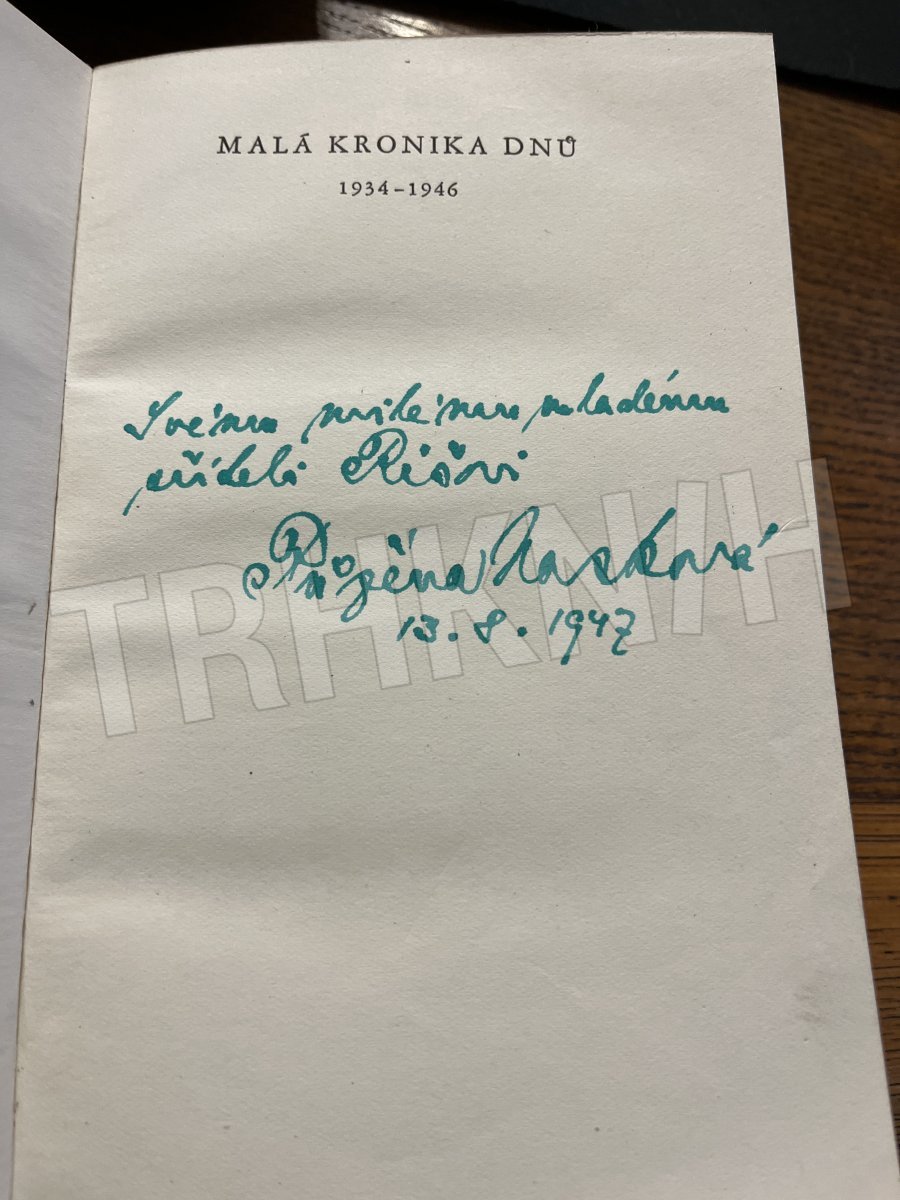 MALÁ KRONIKA DNŮ
1934-1946
Svému milému mladému
příteli Ríšovi
Růžena Nasková
13.8.1947
TRHKNIH